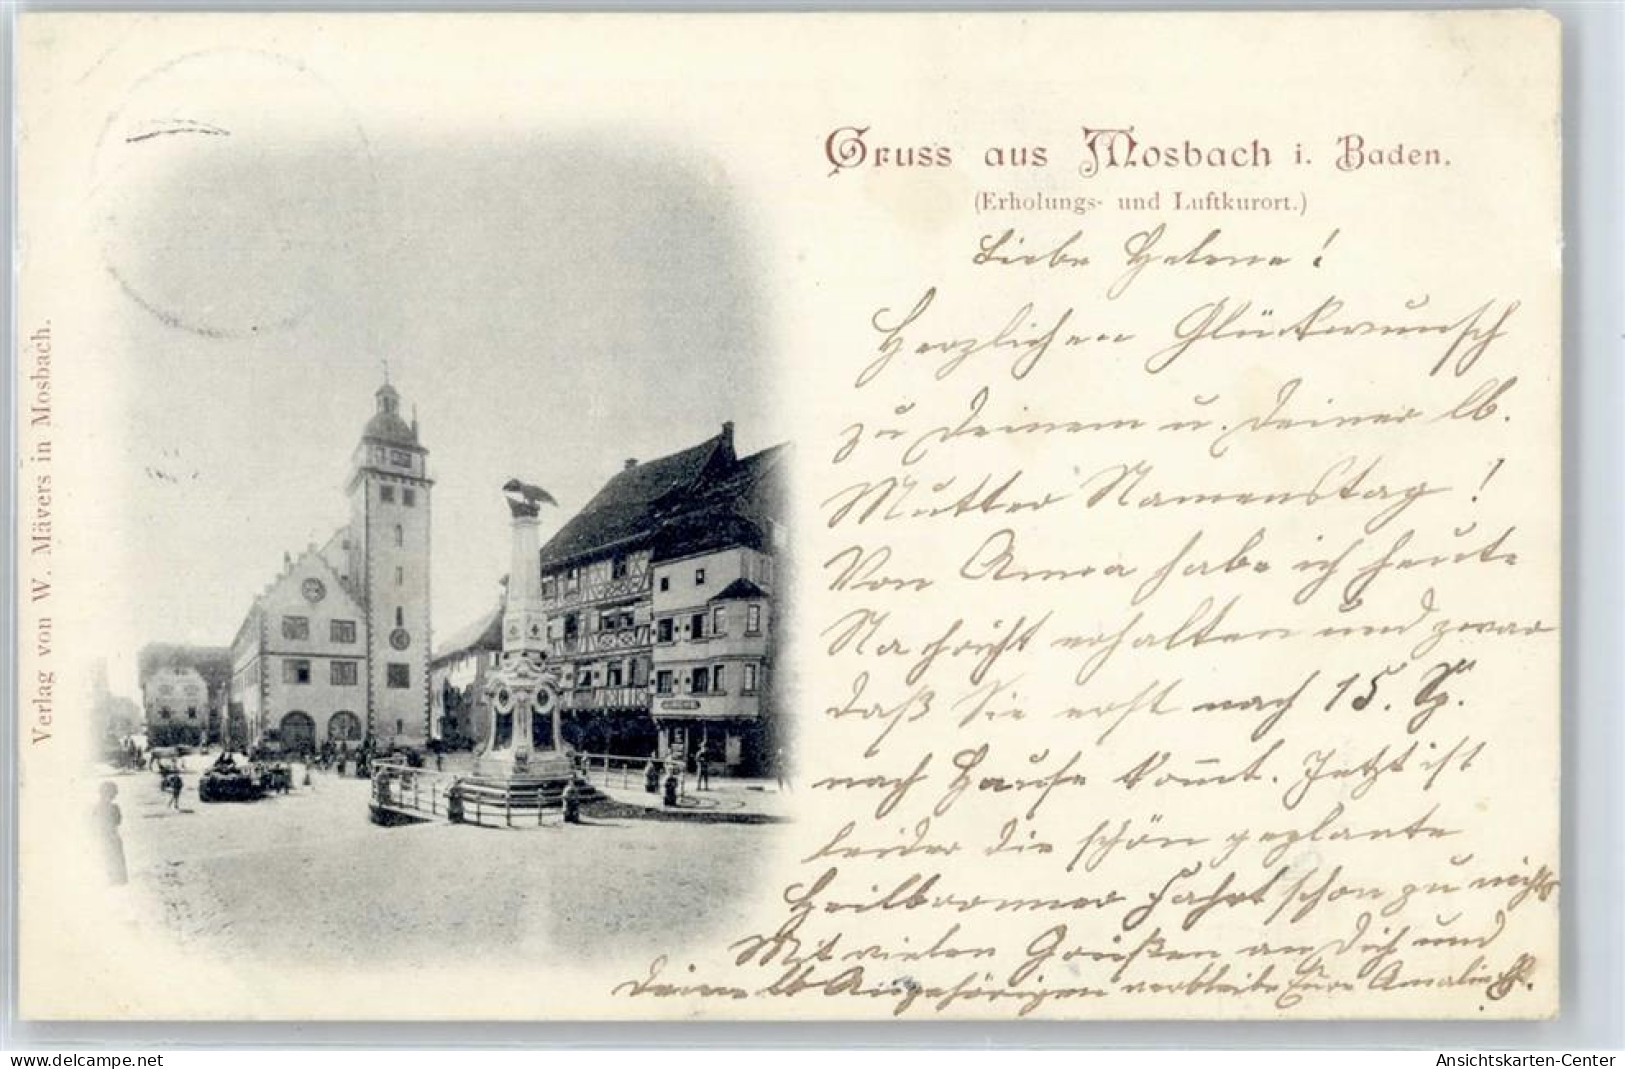 Gruss aus Mosbach i. Baden.
(Erholungs- und Luftkurort.)
Verlag von W. Mävers in Mosbach.
Liebe Helene!
Herzlichen Glückwunsch
zu Deinem u. Deiner lb.
Mutter Namenstag!
Von Anna habe ich heute
Nachricht erhalten und zwar
daß Sie erst nach 15. Sp.
nach Hause kom̅t. Jetzt ist
leider die schön geplante
Heilbronner Fahrt schon zu nichts
Mit vielen Grüßen an Dich und
Deine lb Angehörigen verbleibe Eure Amalie
www.delcampe.net
Ansichtskarten-Center